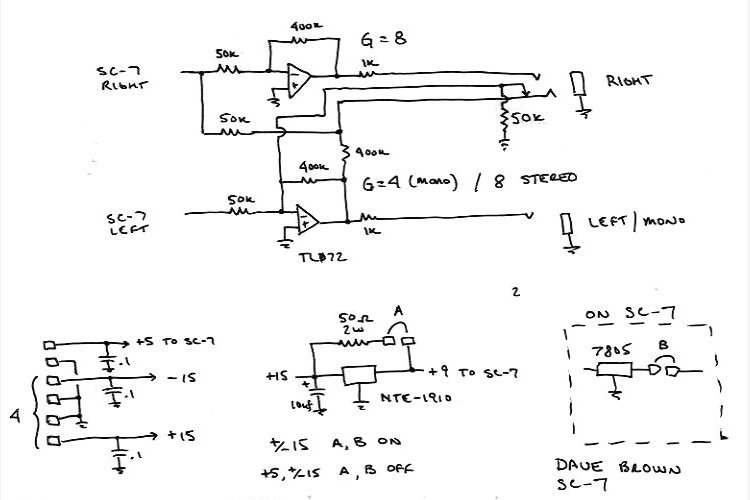 400K
G = 8
50K
1K
SC-7
RIGHT
RIGHT
50K
50K
400K
400K
G=4 (MONO) / 8 STEREO
50K
SC-7
LEFT
1K
LEFT/MONO
TLØ72
2
ON SC-7
50Ω
2W
A
+5 TO SC-7
.1
7805
B
-15
+15
+9 TO SC-7
.1
+
10uf
NTE-1910
4
+15
.1
+/-15 A, B ON
+5, +/-15 A, B OFF
DAVE BROWN
SC-7